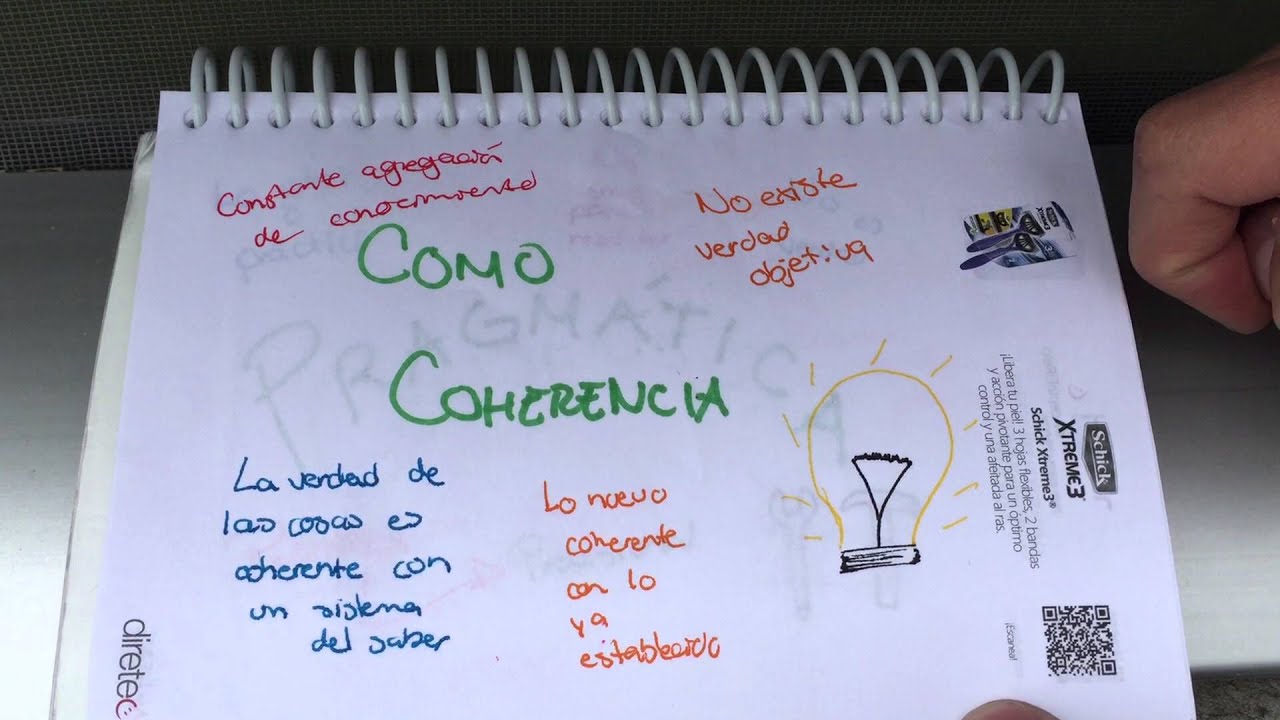 Constante agregación
de conocimiento
COMO
No existe
verdad
objetiva
COHERENCIA
La verdad de
las cosas es
coherente con
un sistema
del saber
Lo nuevo
coherente
con lo
ya
establecido
PRAGMÁTICA
XTREME3
Schick
XTREME3
Schick Xtreme3®
¡Libera tu piel! 3 hojas flexibles, 2 bandas
y acción pivotante para un óptimo
control y una afeitada al ras.
¡Escanea!
diretec